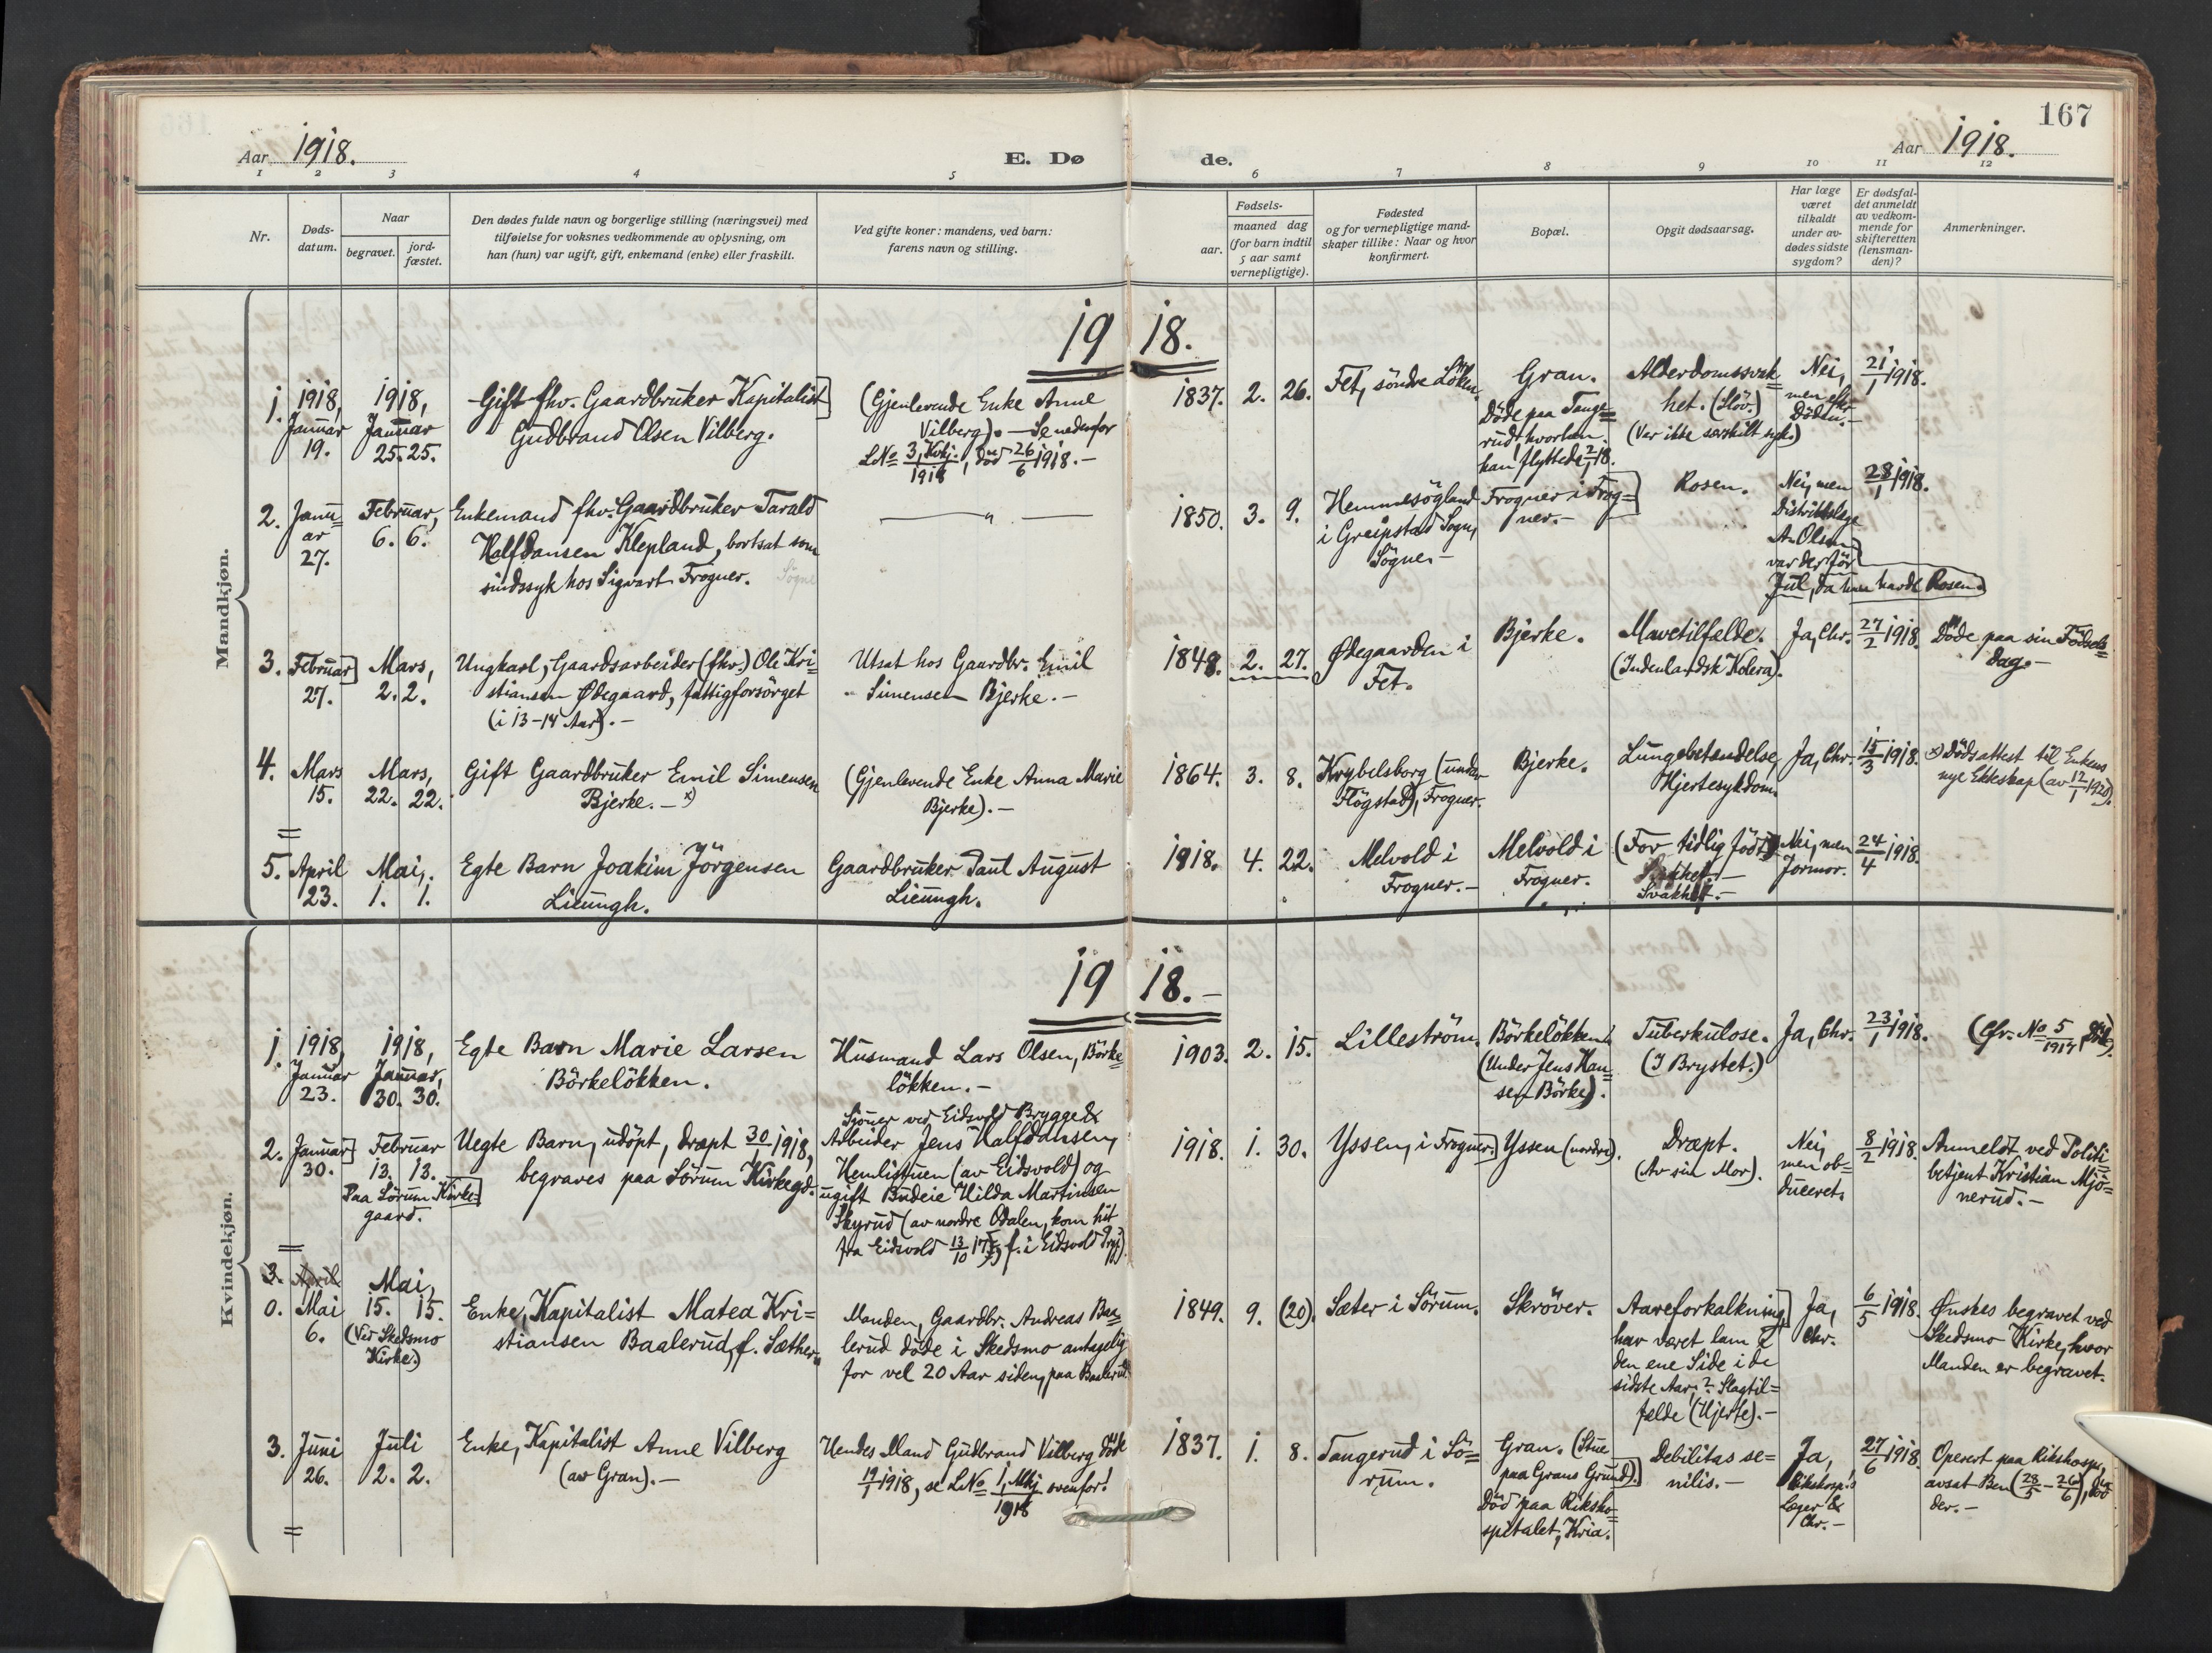 167
Aar 1918.
E. Døde.
Aar 1918.
1 2 3 4 5 6 7 8 9 10 11 12
Nr.
Døds-
datum.
Naar
begravet.
jord-
fæstet.
Den dødes fulde navn og borgerlige stilling (næringsvei) med
tilføielse for voksnes vedkommende av oplysning, om
han (hun) var ugift, gift, enkemand (enke) eller fraskilt.
Ved gifte koner: mandens, ved barn:
farens navn og stilling.
Fødsels-
aar.
maaned dag
(for barn indtil
5 aar samt
vernepligtige).
Fødested
og for vernepligtige mand-
skaper tillike: Naar og hvor
konfirmert.
Bopæl.
Opgit dødsaarsag.
Har læge
været
tilkaldt
under av-
dødes sidste
sygdom?
Er dødsfal-
det anmeldt
av vedkom-
mende for
skifteretten
(lensman-
den)?
Anmerkninger.
Mandkjøn.
1918.
1.
1918,
Januar
19.
1918,
Januar
25. 25.
Gift fhv. Gaardbruker Kapitalist
Gudbrand Olsen Vilberg.
(Gjenlevende Enke Anne
Vilberg). — Se nedenfor
LNo 3, Kvkj. 1918, död 26/6 1918. —
1837. 2. 26.
Fet, söndre Löken.
Gran.
Döde paa Tange=
rud hvorhen
han flyttede 2/1 18.
Alderdomssvak=
het. (Slöv.)
(Var ikke særskilt syk.)
Nei,
men efter
Döden. —
21/1 1918.
2.
Janu=
ar
27.
Februar,
6. 6.
Enkemand fhv. Gaardbruker Tarald
Halfdansen Klepland, bortsat som
sindssyk hos Sigvart Frogner. Sögne
— " —
1850. 3. 9.
Hemmesögland
i Greipstad Sogn,
Sögne. —
Frogner i Frog=
ner. —
Rosen.
Nei, men
Distriktslæge
A. Olsen
var der för
Jul, da han havde Rosen.
28/1 1918.
3.
Februar
27.
Mars,
2. 2.
Ungkarl, Gaardsarbeider (fhv.) Ole Kri=
stiansen Ødegaard, fattigforsörget
(i 13-14 Aar). —
Utsat hos Gaardbr. Emil
Simensen Bjerke. —
1848. 2. 27.
Ødegaarden i
Fet.
Bjerke.
Mavetilfælde.
(Indenlandsk Kolera).
Ja, Chr.
27/2 1918.
Döde paa sin Födsels=
dag. —
4.
Mars
15.
Mars,
22. 22.
Gift Gaardbruker Emil Simensen
Bjerke. — x)
(Gjenlevende Enke Anna Marie
Bjerke). —
1864. 3. 8.
Krybelsborg (under
Flögstad), Frogner.
Bjerke.
Lungebetændelse,
Hjertesykdom.
Ja, Chr.
15/3 1918.
x) Dödsattest til Enkens
nye Ekteskap (av 12/1 1920).
5.
April
23.
Mai,
1. 1.
Egte Barn Joakim Jörgensen
Lieungh.
Gaardbruker Paul August
Lieungh.
1918. 4. 22.
Melvold i
Frogner. —
Melvold i
Frogner.
(For tidlig födt)
Svakhet. —
Nei, men
Jormor.
24/4 1918.
Kvindekjøn.
1918. —
1.
1918,
Januar
23.
1918,
Januar,
30. 30.
Egte Barn Marie Larsen
Börkelökken.
Husmand Lars Olsen, Börke=
lökken. —
1903. 2. 15.
Lilleström.
Börkelökken
(Under Jens Han=
sen Börke).
Tuberkulose.
(I Brystet.)
Ja, Chr.
23/1 1918.
(Cfr. No 5/1917, Döde).
2.
Januar
30.
Februar
13. 13.
Paa Sörum Kirke=
gaard.
Uegte Barn, udöpt, dræpt 30/1 1918,
begraves paa Sörum Kirkegd.
Sjöuer ved Eidsvold Brygge &
Arbeider Jens Halfdansen,
Hemlistuen (av Eidsvold) og
ugift Budeie Hilda Martinsen
Skyrud (av nordre Odalen, kom hit
fra Eidsvold 13/10 17), f. i Eidsvold Prgj.)
1918. 1. 30.
Yssen, i Frogner.
Yssen (nordre).
Dræpt.
(Av sin Mor).
Nei,
men ob=
duceret.
8/2 1918.
Anmeldt ved Politi=
betjent Kristian Mjö=
nerud. —
3. April
0.
Mai
6.
Mai,
15. 15.
(Ved Skedsmo
Kirke.)
Enke, Kapitalist Matea Kri=
stiansen Baalerud, f. Sæther.
Manden, Gaardbr. Andreas Baa=
lerud döde i Skedsmo antagelig
for vel 20 Aar siden, paa Baalerud.
1849. 9. (20).
Sæter i Sörum.
Skröver.
Aareforkalkning
har været lam i
den ene Side i de
sidste Aar, ? Slagtil=
fælde (Hjerte). —
Ja,
Chr.
6/5 1918.
Ønskes begravet ved
Skedsmo Kirke, hvor
Manden er begravet.
3.
Juni
26.
Juli
2. 2.
Enke, Kapitalist Anne Vilberg
(av Gran). —
Hendes Mand Gudbrand Vilberg döde
19/1 1918, se LNo 1, Mkj. 1918 ovenfor!
1837. 1. 8.
Tangerud i Sö=
rum.
Gran. (Stue
paa Grans Grund).
Död paa Riksho=
spitalet, Kria.
Debilitas se=
nilis. —
Ja,
Rikshosp.'s
Læger &
Chr. —
27/6 1918.
Operert paa Rikshosp.,
avsat Ben (28/5 - 26/6), död
der. —